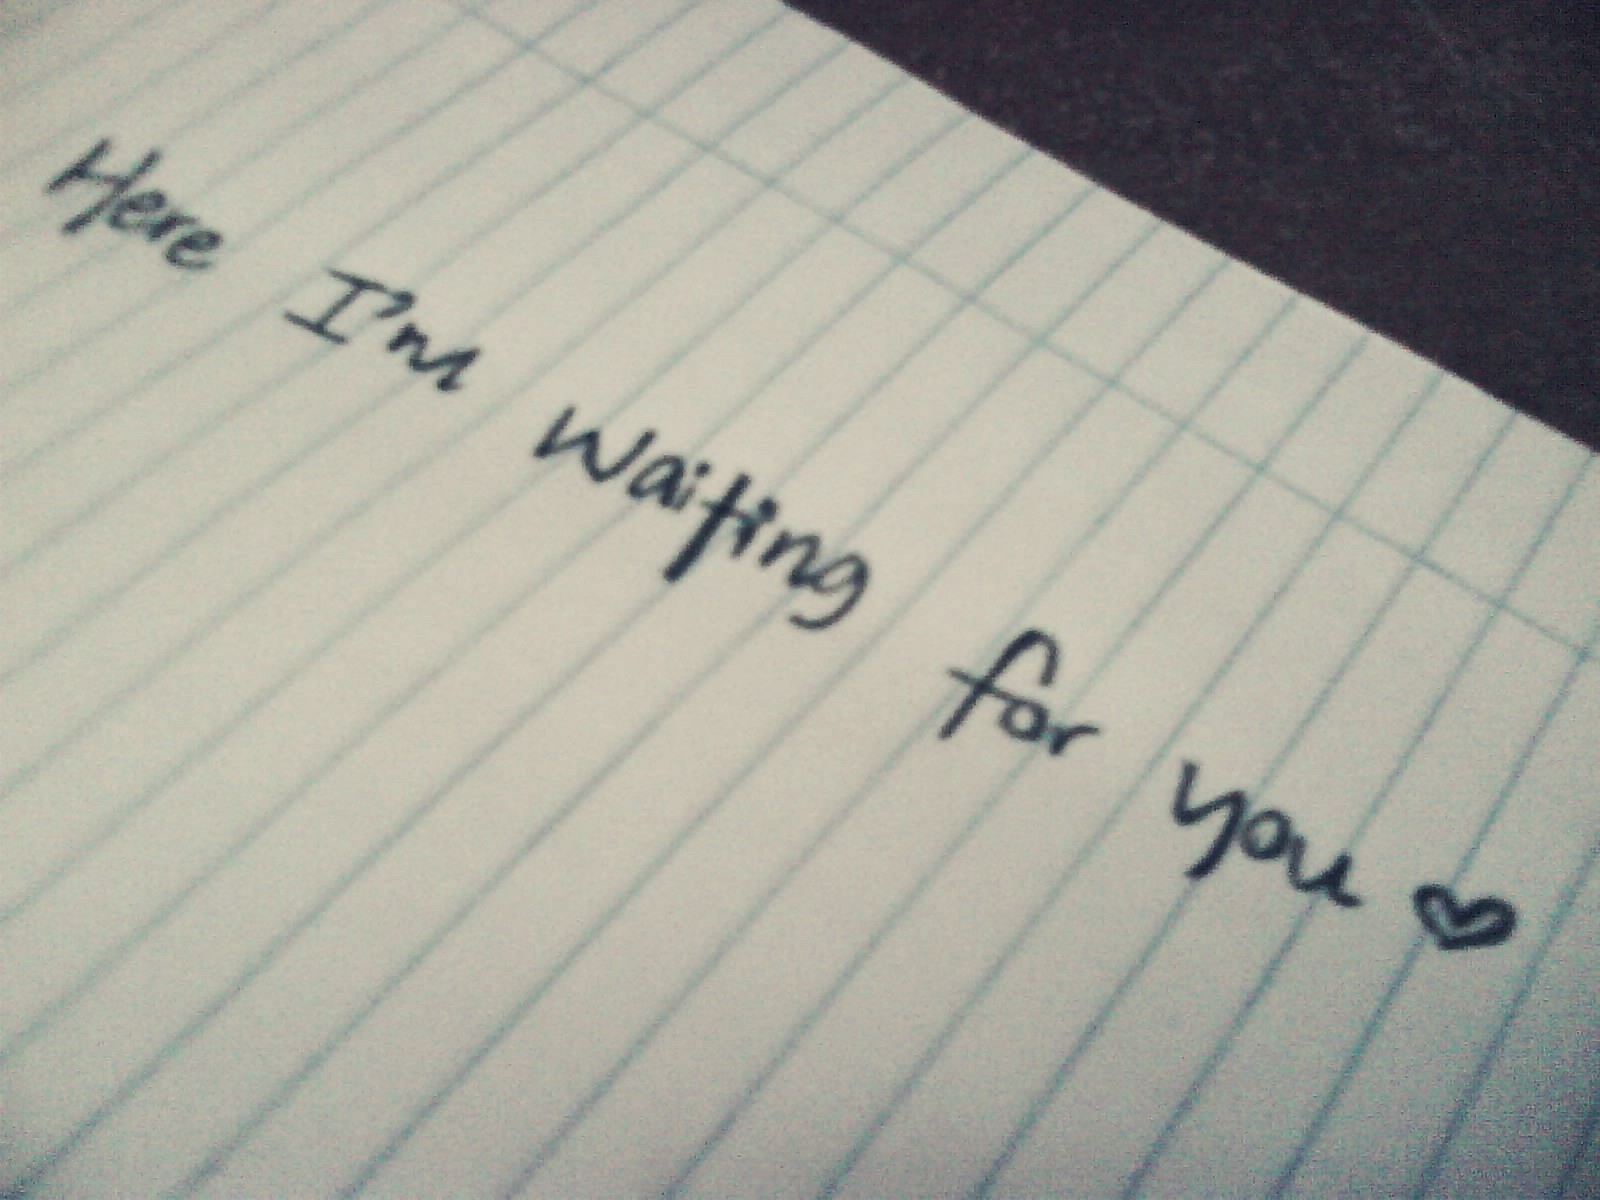 Here I'm waiting for you ♥